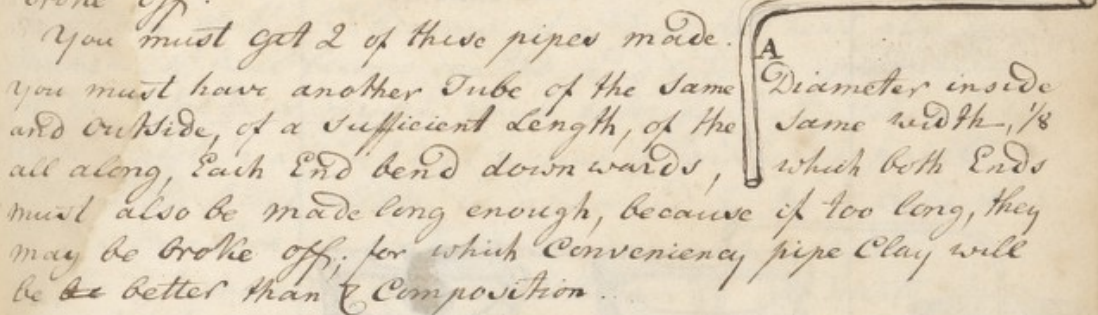 broke off.
You must get 2 of these pipes made.
A
you must have another Tube of the Same Diameter inside
and Outside, of a Sufficient Length, of the same width, 1/8
all along, Each End bend down wards, which both Ends
must also be made long enough, because if too long, they
may be broke off; for which Conveniency pipe Clay will
be better than Composition.